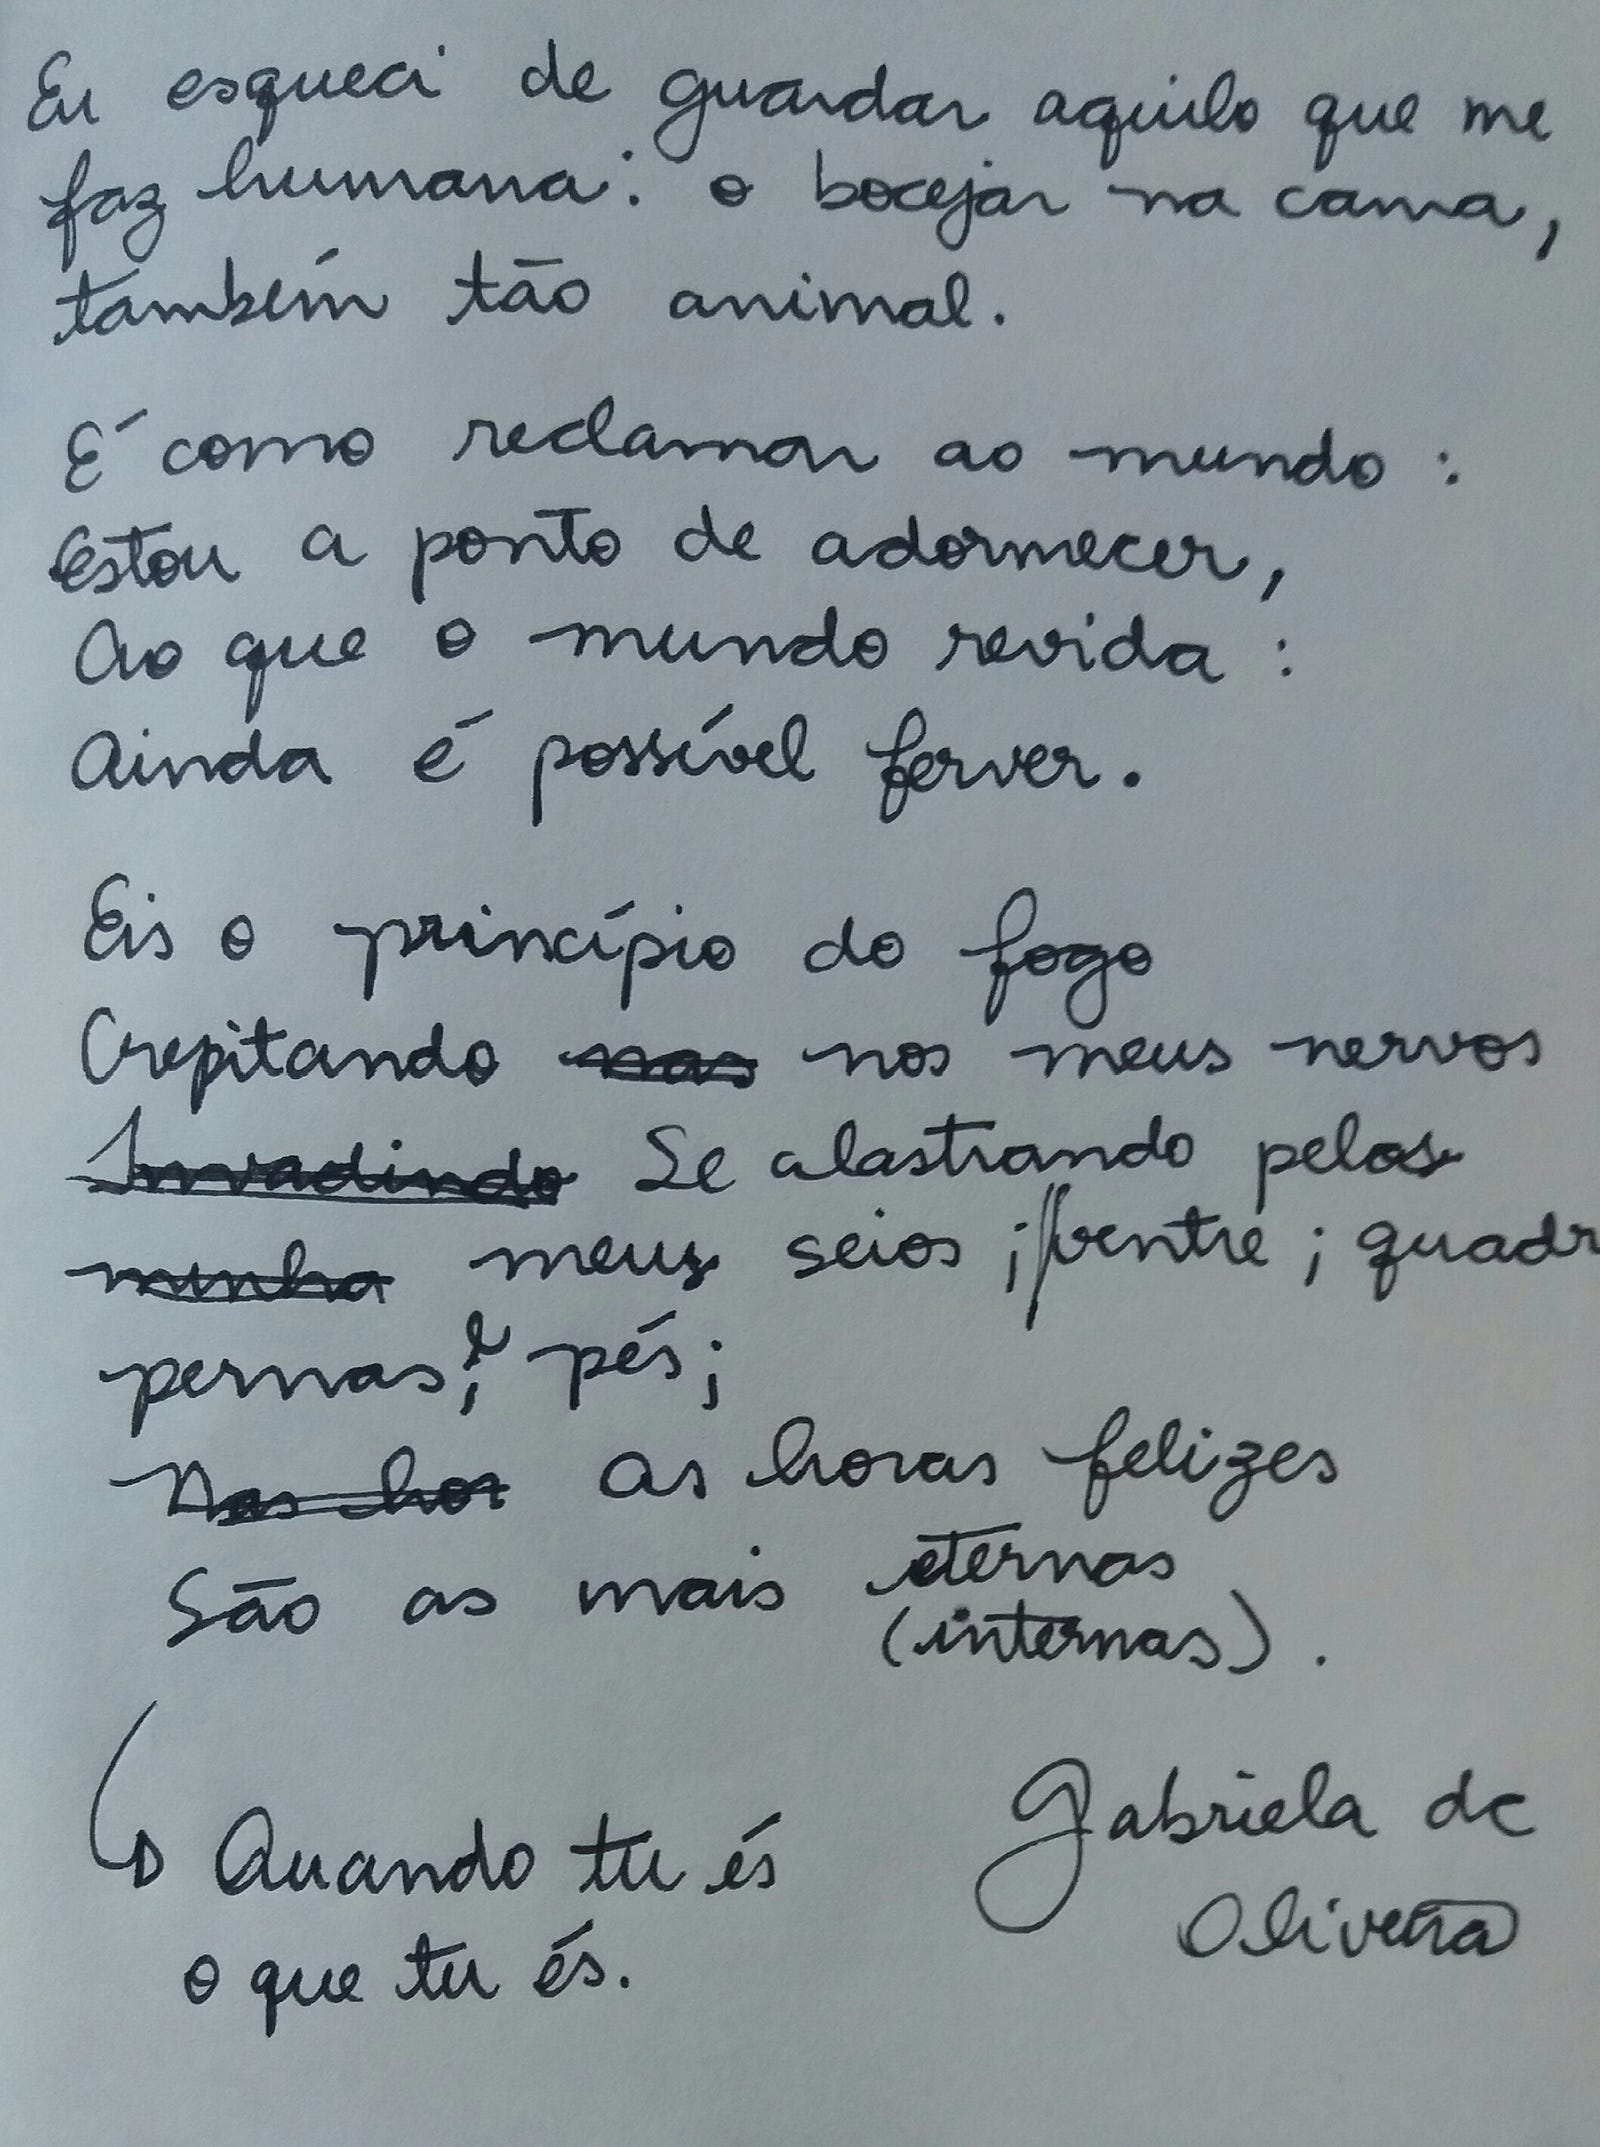 Eu esqueci de guardar aquilo que me
faz humana: o bocejar na cama,
também tão animal.
É como reclamar ao mundo:
Estou a ponto de adormecer,
Ao que o mundo revida:
Ainda é possível ferver.
Eis o princípio do fogo
Crepitando nas nos meus nervos
Invadindo Se alastrando pelos
minha meus seios; ventre; quadr
pernas; e pés;
Nas hor as horas felizes
São as mais eternas
(internas).
Quando tu és
o que tu és.
Gabriela de
Oliveira